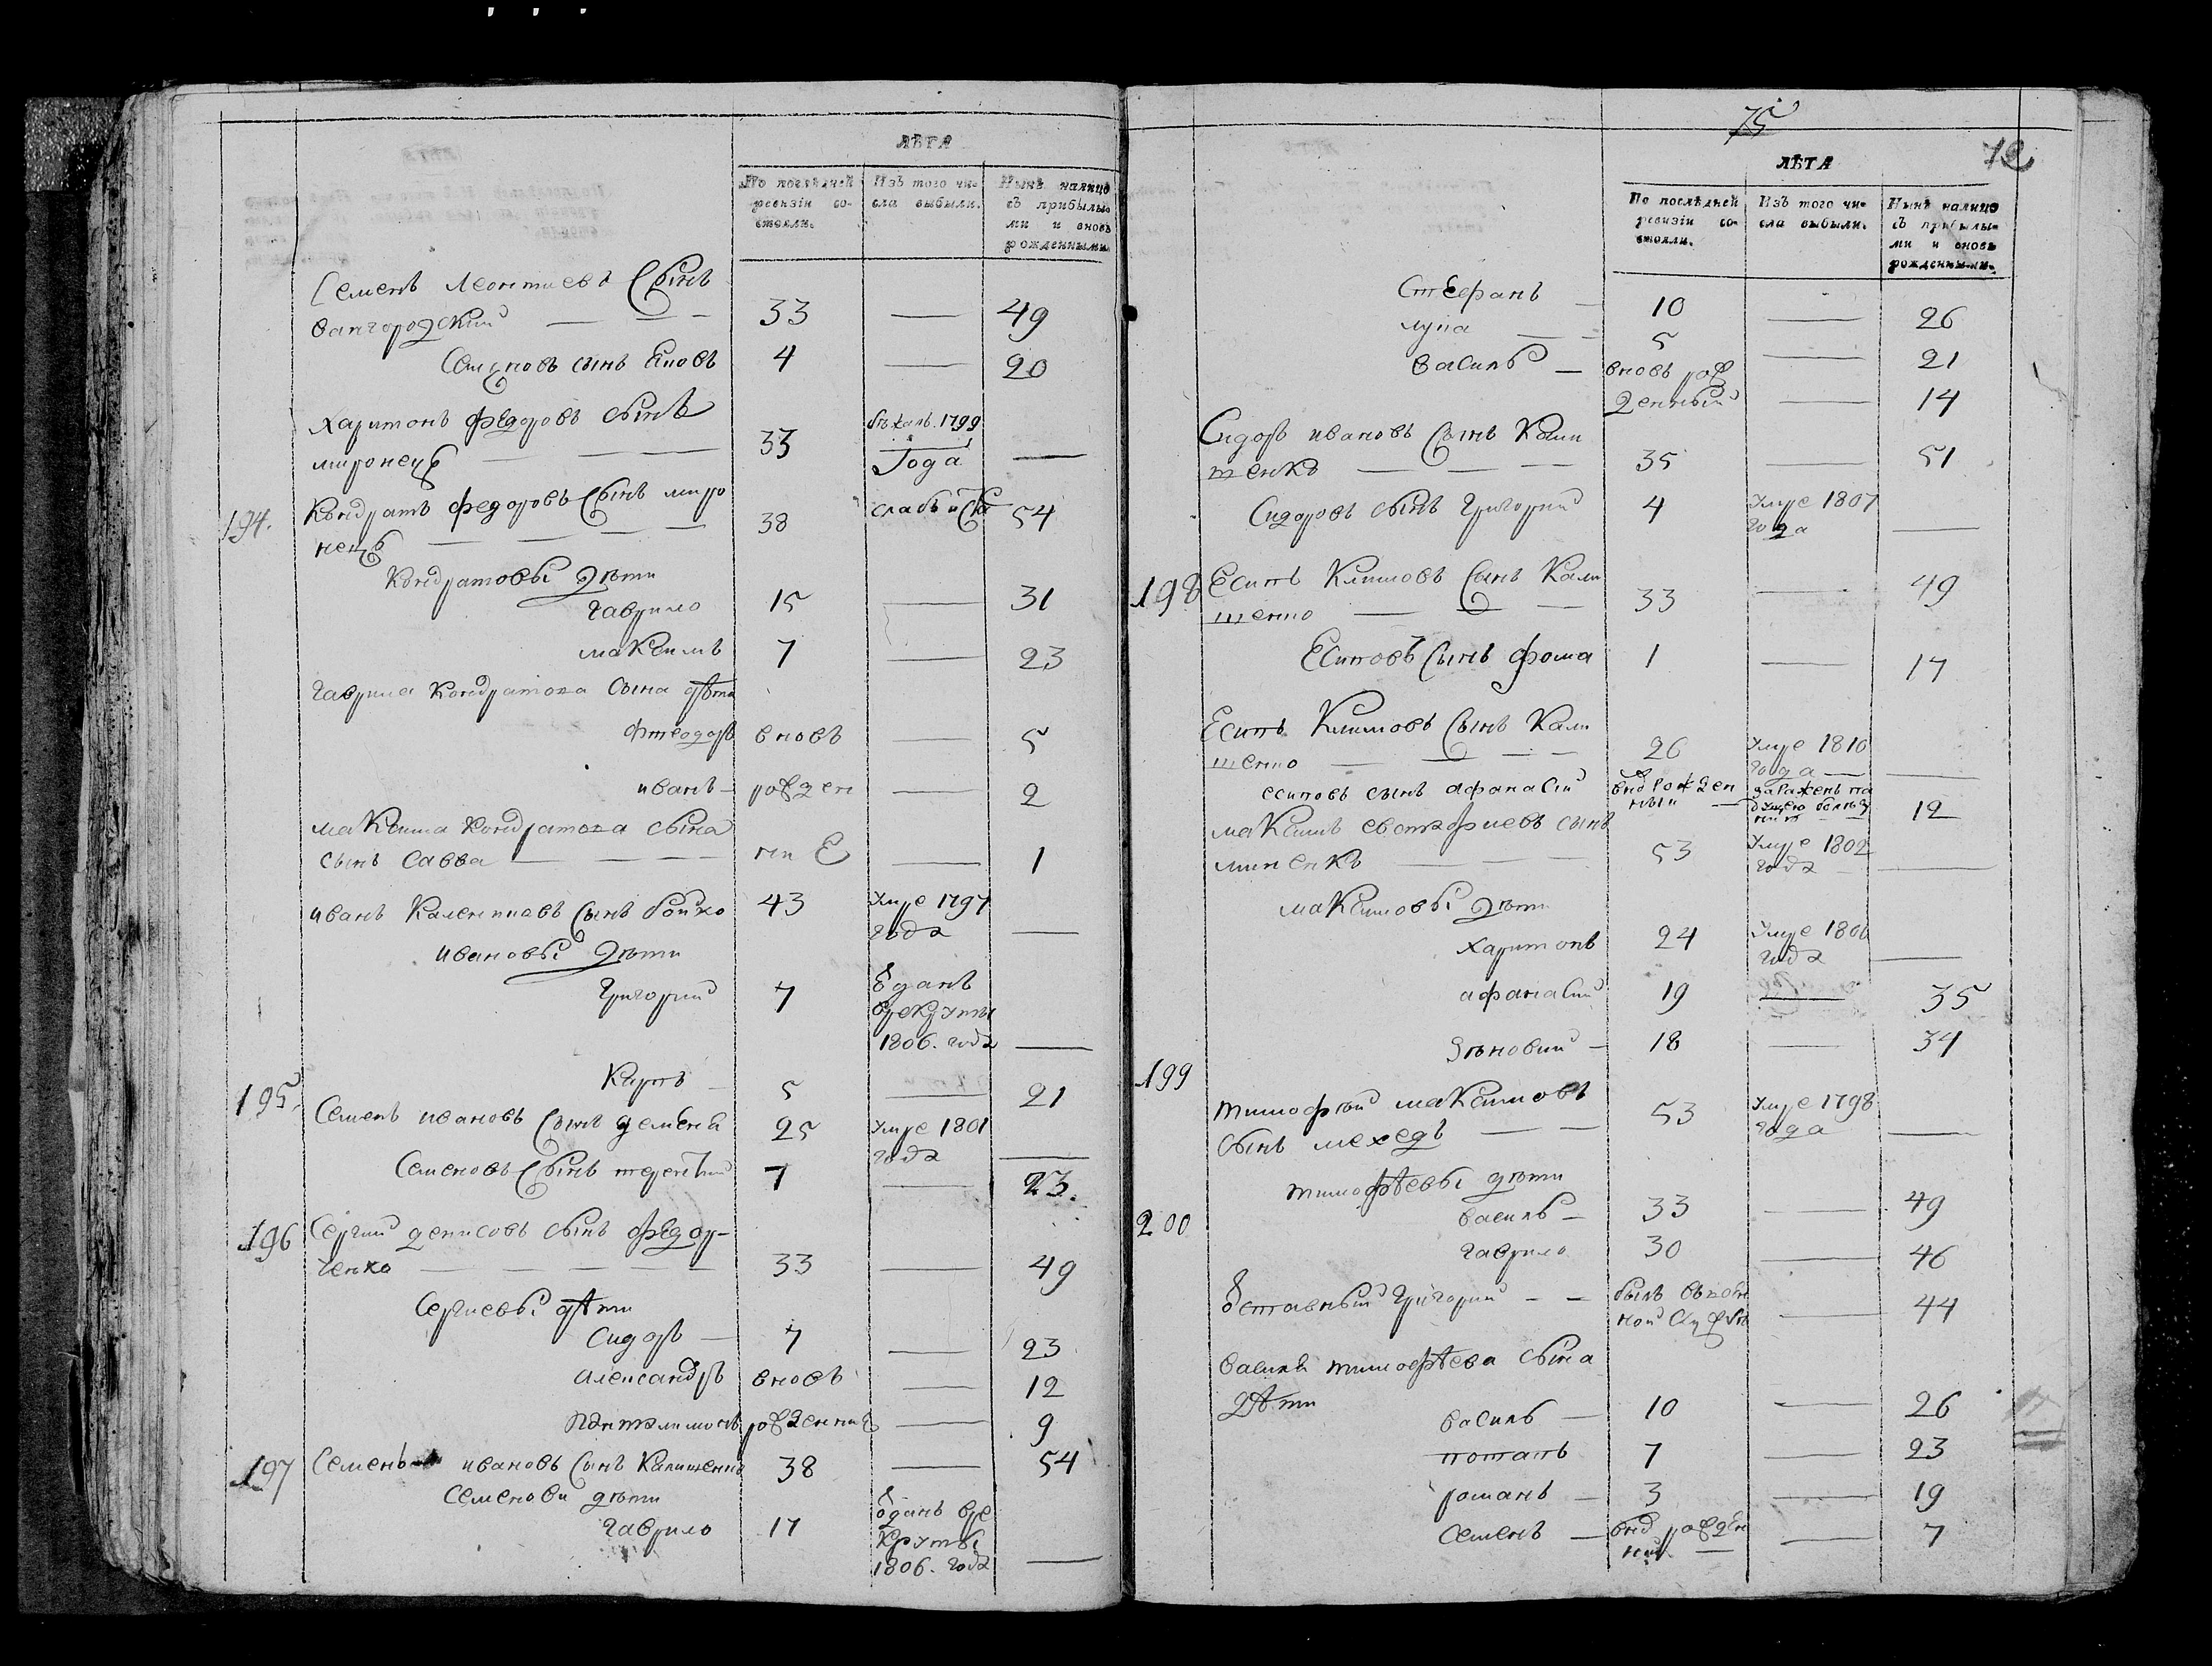 ЛѢТА
По послѣдней ревизіи состояли.
Изъ того числа выбыли.
Нынѣ налицо съ прибылыми и вновь рожденными.
Семенъ Леонтиевъ Сынъ
вангородский — — — 33 — 49
Семеновъ сынъ Яковъ 4 — 20
Харитонъ федоровъ сынъ бѣжалъ 1799
миронецъ — — 33 года —
194. Кондратъ федоровъ Сынъ миро
нецъ — — — — 38 54
Кондратовы дѣти
гаврило 15 — 31
максимъ 7 — 23
гаврила Кондратова Сына дѣти
Фтеодоръ вновь — 5
иванъ — рожден — 2
максима Кондратова сына
сынъ Савва — — — ніи Е — 1
иванъ Сынъ бойко 43 Умре 1797
года —
ивановы дѣти
григорий 7 Ѿданъ
врекруты
1806. года —
195. Карпъ — 5 — 21
Семенъ ивановъ Сынъ 25 Умре 1801
года —
Семеновъ Сынъ терентий 7 — 23.
196 Сергий денисовъ сынъ федор-
ченко — — — — — 33 — 49
Сергиевы дѣти
Сидоръ — 7 — 23
александръ вновь — 12
Пантелимонъ рожденние — 9
197 Семенъ ивановъ Сынъ Калищенко 38 — 54
Семенови дѣти
гаврило 17 Ѿданъ вре
круты
1806. года —
75
72
ЛѢТА
По послѣдней ревизіи состояли.
Изъ того числа выбыли.
Нынѣ налицо съ прибылыми и вновь рожденными.
Стефанъ — 10 — 26
лупа — 5 — 21
василь — вновь рож
денный — 14
Сидоръ ивановъ Сынъ Кали
тенко — — — 35 — 51
Сидоровъ сынъ Григорий 4 Умре 1807
года —
198 Есипъ Климовъ Сынъ Кали
— — — 33 — 49
Есиповъ Сынъ фома 1 — 17
Есипъ Климовъ Сынъ Кали
— — — 26 Умре 1810
года — —
есиповъ сынъ афанасий 12
максимъ сынъ
миненкъ — — — 53 Умре 1802
года — —
максимовы дѣти
харитонъ 24 Умре 1806
года —
афанасий 19 — 35
Зѣновий — 18 — 34
199
тимофѣй максимовъ
сынъ мехедъ — — 53 Умре 1798
года —
тимофѣевы дѣти
василь — 33 — 49
200
гаврило 30 — 46
Ѿставный григорий — — былъ
ной службѣ — 44
василя тимофѣева сына
дѣти
василь — 10 — 26
потапъ 7 — 23
романъ — 3 — 19
Семенъ — рожден
ний — — 7